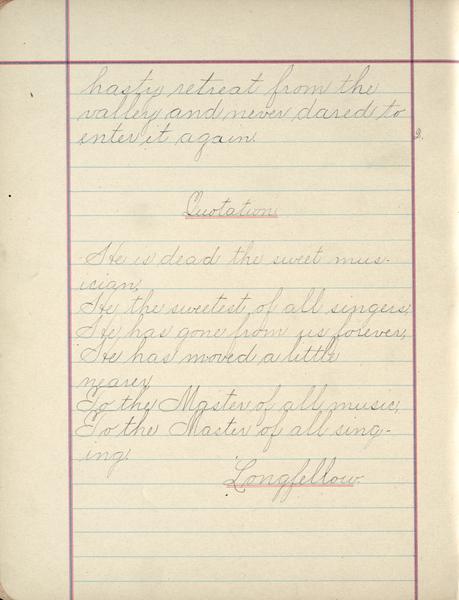 hasty retreat from the
valley and never dared to
enter it again.
2.
Quotation.
He is dead the sweet mus-
ician,
He the sweetest of all singers,
He has gone from us forever,
He has moved a little
nearer
To the Master of all music,
To the Master of all sing-
ing.
Longfellow.